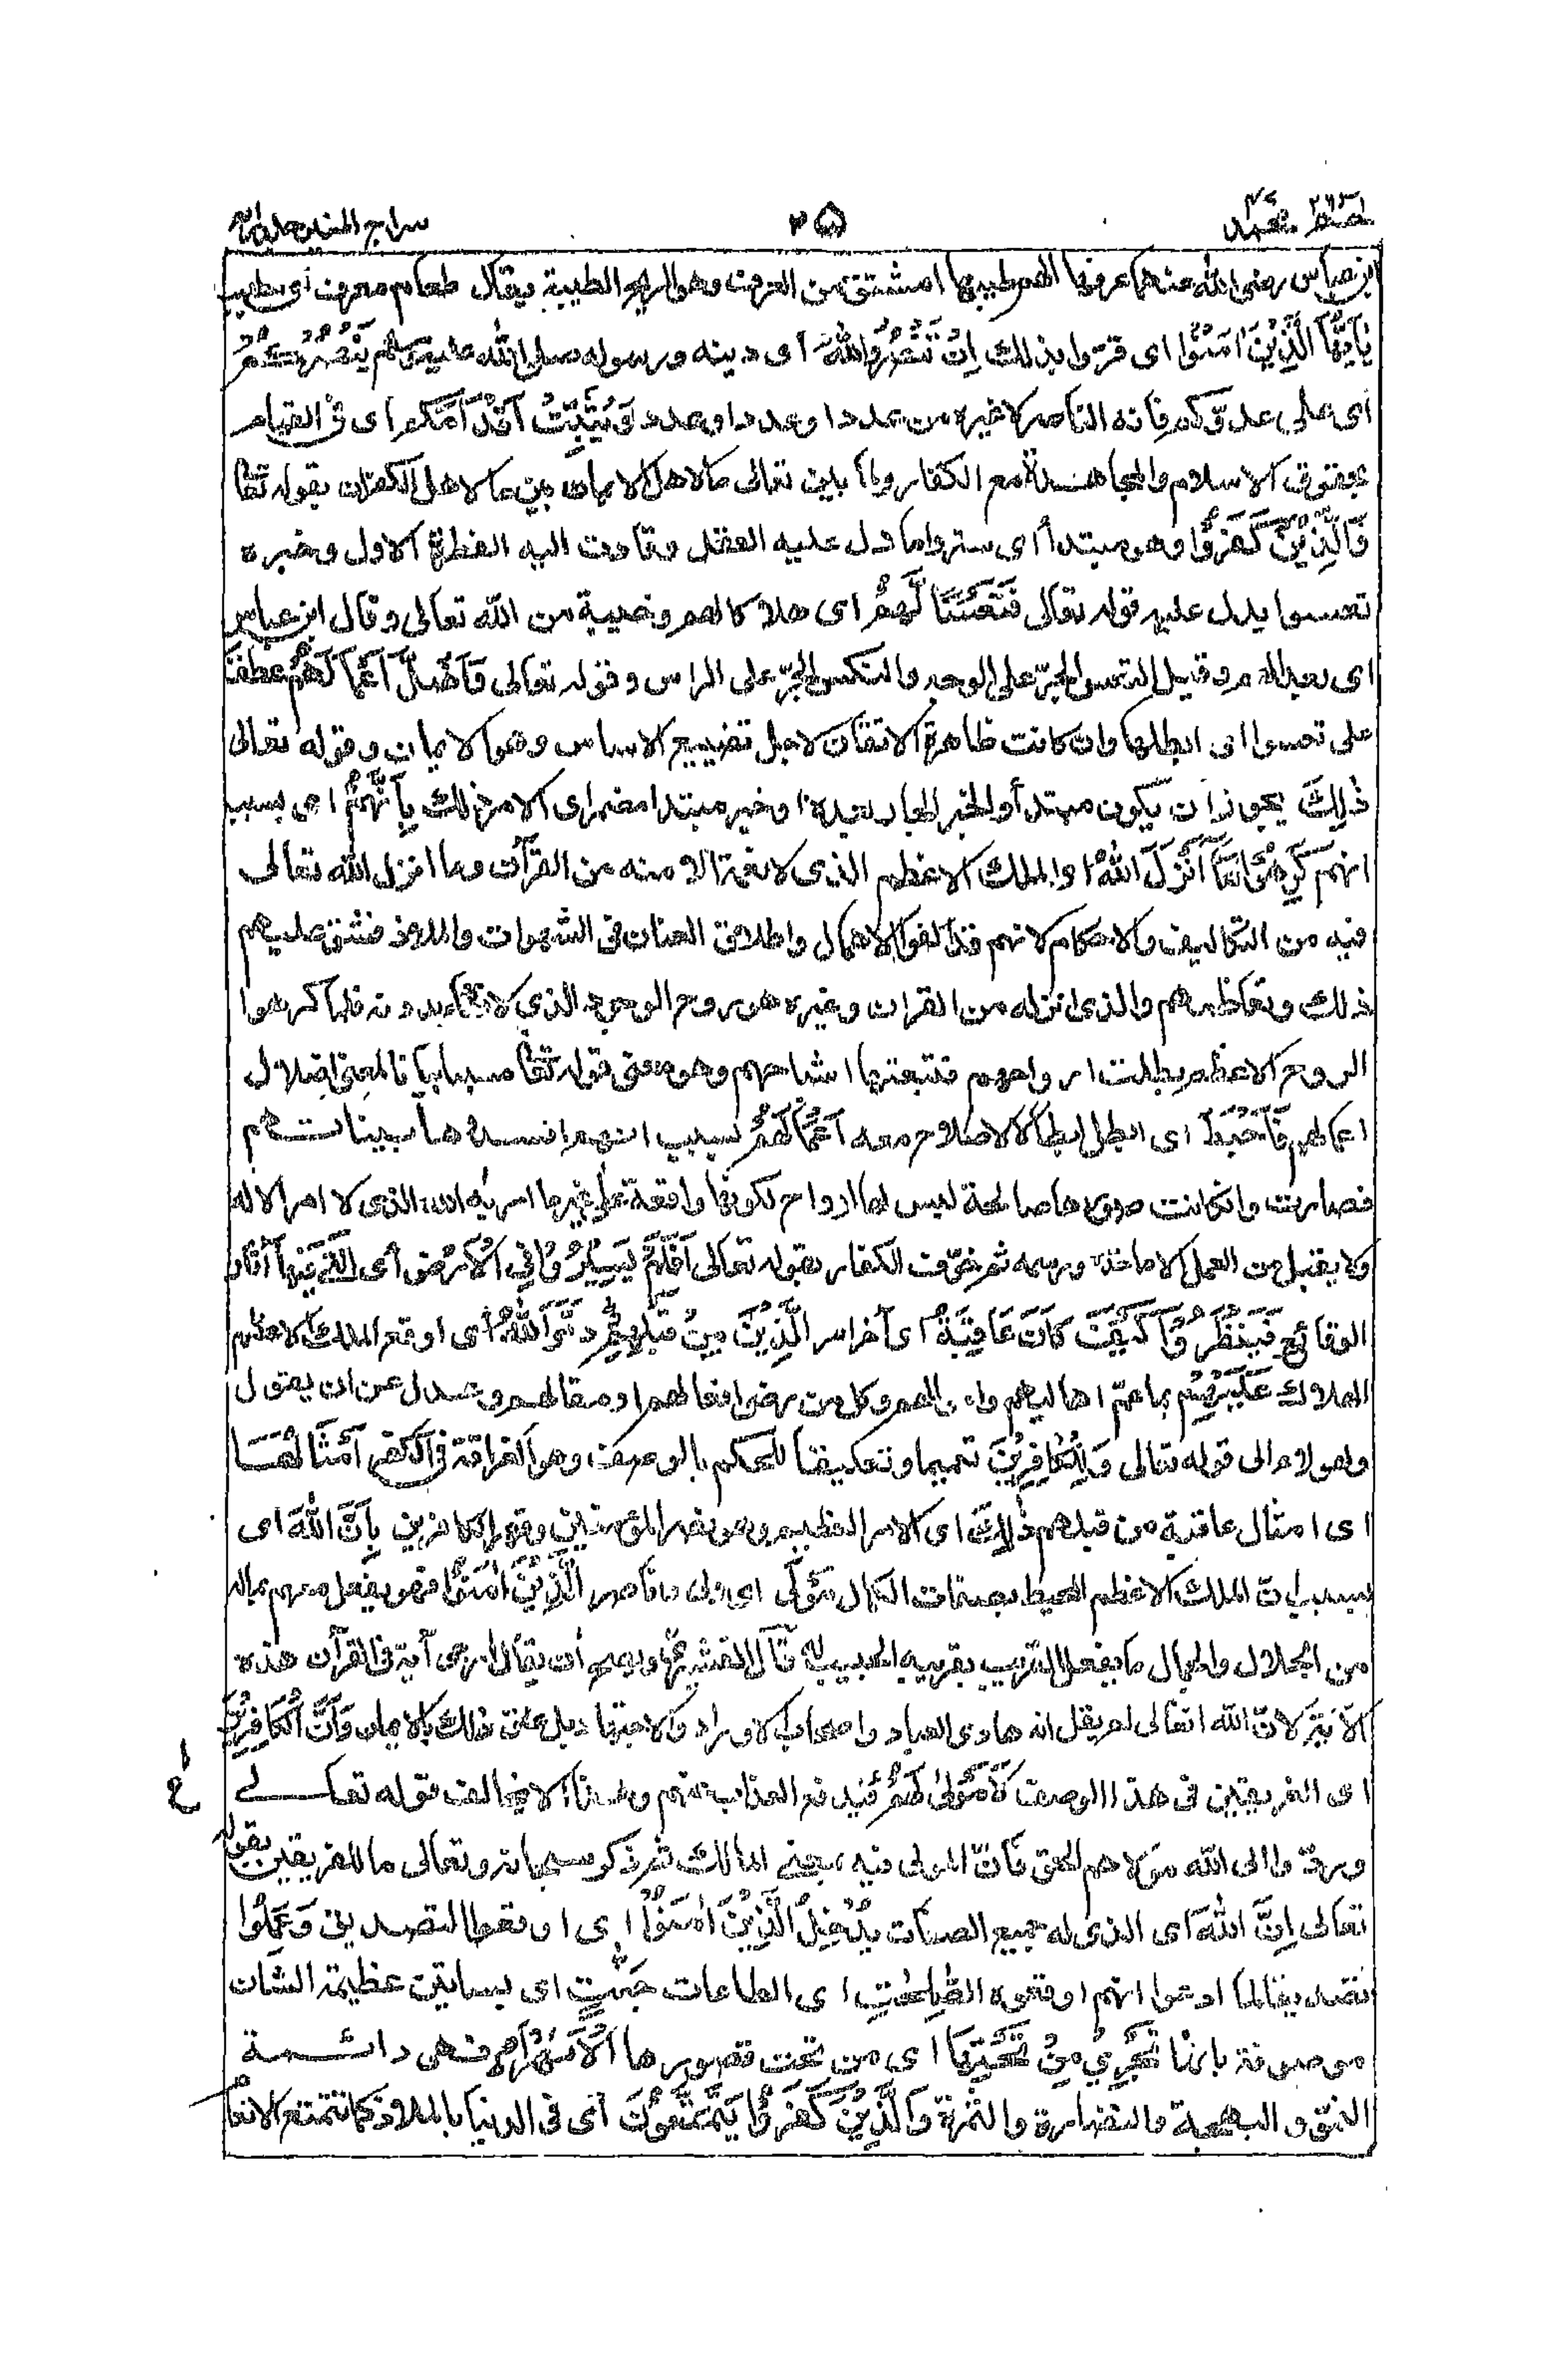 حم ٢٦ محمد ٤٧
٢٥
سراج المنير جلد رابع
ابن عباس رضي الله عنهما عرفها لهم طيبها مشتق من العرف وهو الريح الطيبة يقال طعام معرف أي مطيب
يٰأَيُّهَا الَّذِيْنَ اٰمَنُوْا اى قروا بذلك اِنْ تَنْصُرُوا اللهَ اى دينه ورسوله صلى الله عليه وسلم يَنْصُرْكُمْ
اى على عدوّكم فانه الناصر لا غيره من عددا وعددا وعدد وَيُثَبِّتْ اَقْدَامَكُمْ اى فى القيام
بحقوق الاسلام والمجاهدة مع الكفار ولما بين تعالى ما لاهل الايمان بين ما لاهل الكفران بقوله تعالى
وَالَّذِيْنَ كَفَرُوْا وهو مبتدأ اى ستروا ما دل عليه العقل وقادت اليه الفطرة الاول وخبره
تعسوا يدل عليه قوله تعالى فَتَعْسًا لَّهُمْ اى هلاكا لهم وخيبة من الله تعالى وقال ابن عباس
اى بعدا لهم وقيل التعس الجرّ على الوجه والنكس الجرّ على الراس وقوله تعالى وَاَضَلَّ اَعْمَالَهُمْ عطف
على تعسوا اى ابطلها وان كانت ظاهرة الاتقان لاجل تضييع الاساس وهو الايمان وقوله تعالى
ذٰلِكَ يجوز ان يكون مبتدأ والخبر الجار بعده او خبر مبتدا مضمر اى الامر ذلك بِاَنَّهُمْ اى بسبب
انهم كَرِهُوْا مَا اَنْزَلَ اللهُ اى الملك الاعظم الذى لا نعمة الا منه من القرآن وما انزل الله تعالى
فيه من التكاليف والاحكام لانهم قد الفوا الاهمال واطلاق العنان فى الشهوات والملاذ فشق عليهم
ذلك وتعاظمهم والذى انزله من القران وغيره هو روح الوجود الذى لا بقاء بدونه فلما كرهوا
الروح الاعظم بطلت ارواحهم فتبعتها اشباحهم وهو معنى قوله تعالى مسببا بيانا لمعنى اضلال
اعمالهم فَاَحْبَطَ اى ابطل ابطالا لا صلاح معه اَعْمَالَهُمْ بسبب انهم افسدوها بنياتهم
فصارت وان كانت صورها صالحة ليس لها ارواح لكونها واقعة على غير ما امر به الله الذى لا امر الا له
ولا يقبل من العمل الا ما حدّه ورسمه ثم خوّف الكفار بقوله تعالى اَفَلَمْ يَسِيْرُوْا فِي الْاَرْضِ اى التى فيها آثار
الوقائع فَيَنْظُرُوْا كَيْفَ كَانَ عَاقِبَةُ اى آخر امر الَّذِيْنَ مِنْ قَبْلِهِمْ دَمَّرَ اللهُ اى اوقع الملك الاعظم
الهلاك عَلَيْهِمْ بما عمّ اهاليهم واموالهم وكل من رضى افعالهم او مقالهم وعدل عن ان يقول
ولهؤلاء الى قوله تعالى وَلِلْكَافِرِيْنَ تعميما وتعليقا للحكم بالوصف وهو العراقة فى الكفر اَمْثَالُهَا
اى امثال عاقبة من قبلهم ذٰلِكَ اى الامر العظيم وهو نصر المؤمنين وقهر الكافرين بِاَنَّ اللهَ اى
بسبب ان الملك الاعظم المحيط بصفات الكمال مَوْلَى اى ولى وناصر الَّذِيْنَ اٰمَنُوْا فهو يفعل معهم بماله
من الجلال والجمال ما يفعل القريب بقريبه الحبيب له قال القشيرى ويصح ان يقال ارجى آية فى القرآن هذه
الآية لانّ الله تعالى لم يقل انه هادى العباد واصحاب الاوراد والاجتهاد بل علق ذلك بالايمان وَاَنَّ الْكَافِرِيْنَ
اى العريقين فى هذا الوصف لَا مَوْلٰى لَهُمْ فيدفع العذاب عنهم وهذا لا يخالف قوله تعالى
وردّوا الى الله مولاهم الحق فانّ المولى فيه بمعنى المالك ثم ذكر سبحانه وتعالى ما للفريقين بقوله
تعالى اِنَّ اللهَ اى الذى له جميع الصفات يُدْخِلُ الَّذِيْنَ اٰمَنُوْا اى اوقعوا التصديق وَعَمِلُوا
تصديقا لما ادعوا انهم اوقعوه الصّٰلِحٰتِ اى الطاعات جَنّٰتٍ اى بساتين عظيمة الشان
موصوفة بانها تَجْرِيْ مِنْ تَحْتِهَا اى من تحت قصورها الْاَنْهٰرُ فهى دائمة
النموّ والبهجة والنضارة والثمرة وَالَّذِيْنَ كَفَرُوْا يَتَمَتَّعُوْنَ اى فى الدنيا بالملاذ كما تتمتع الانعام
ع